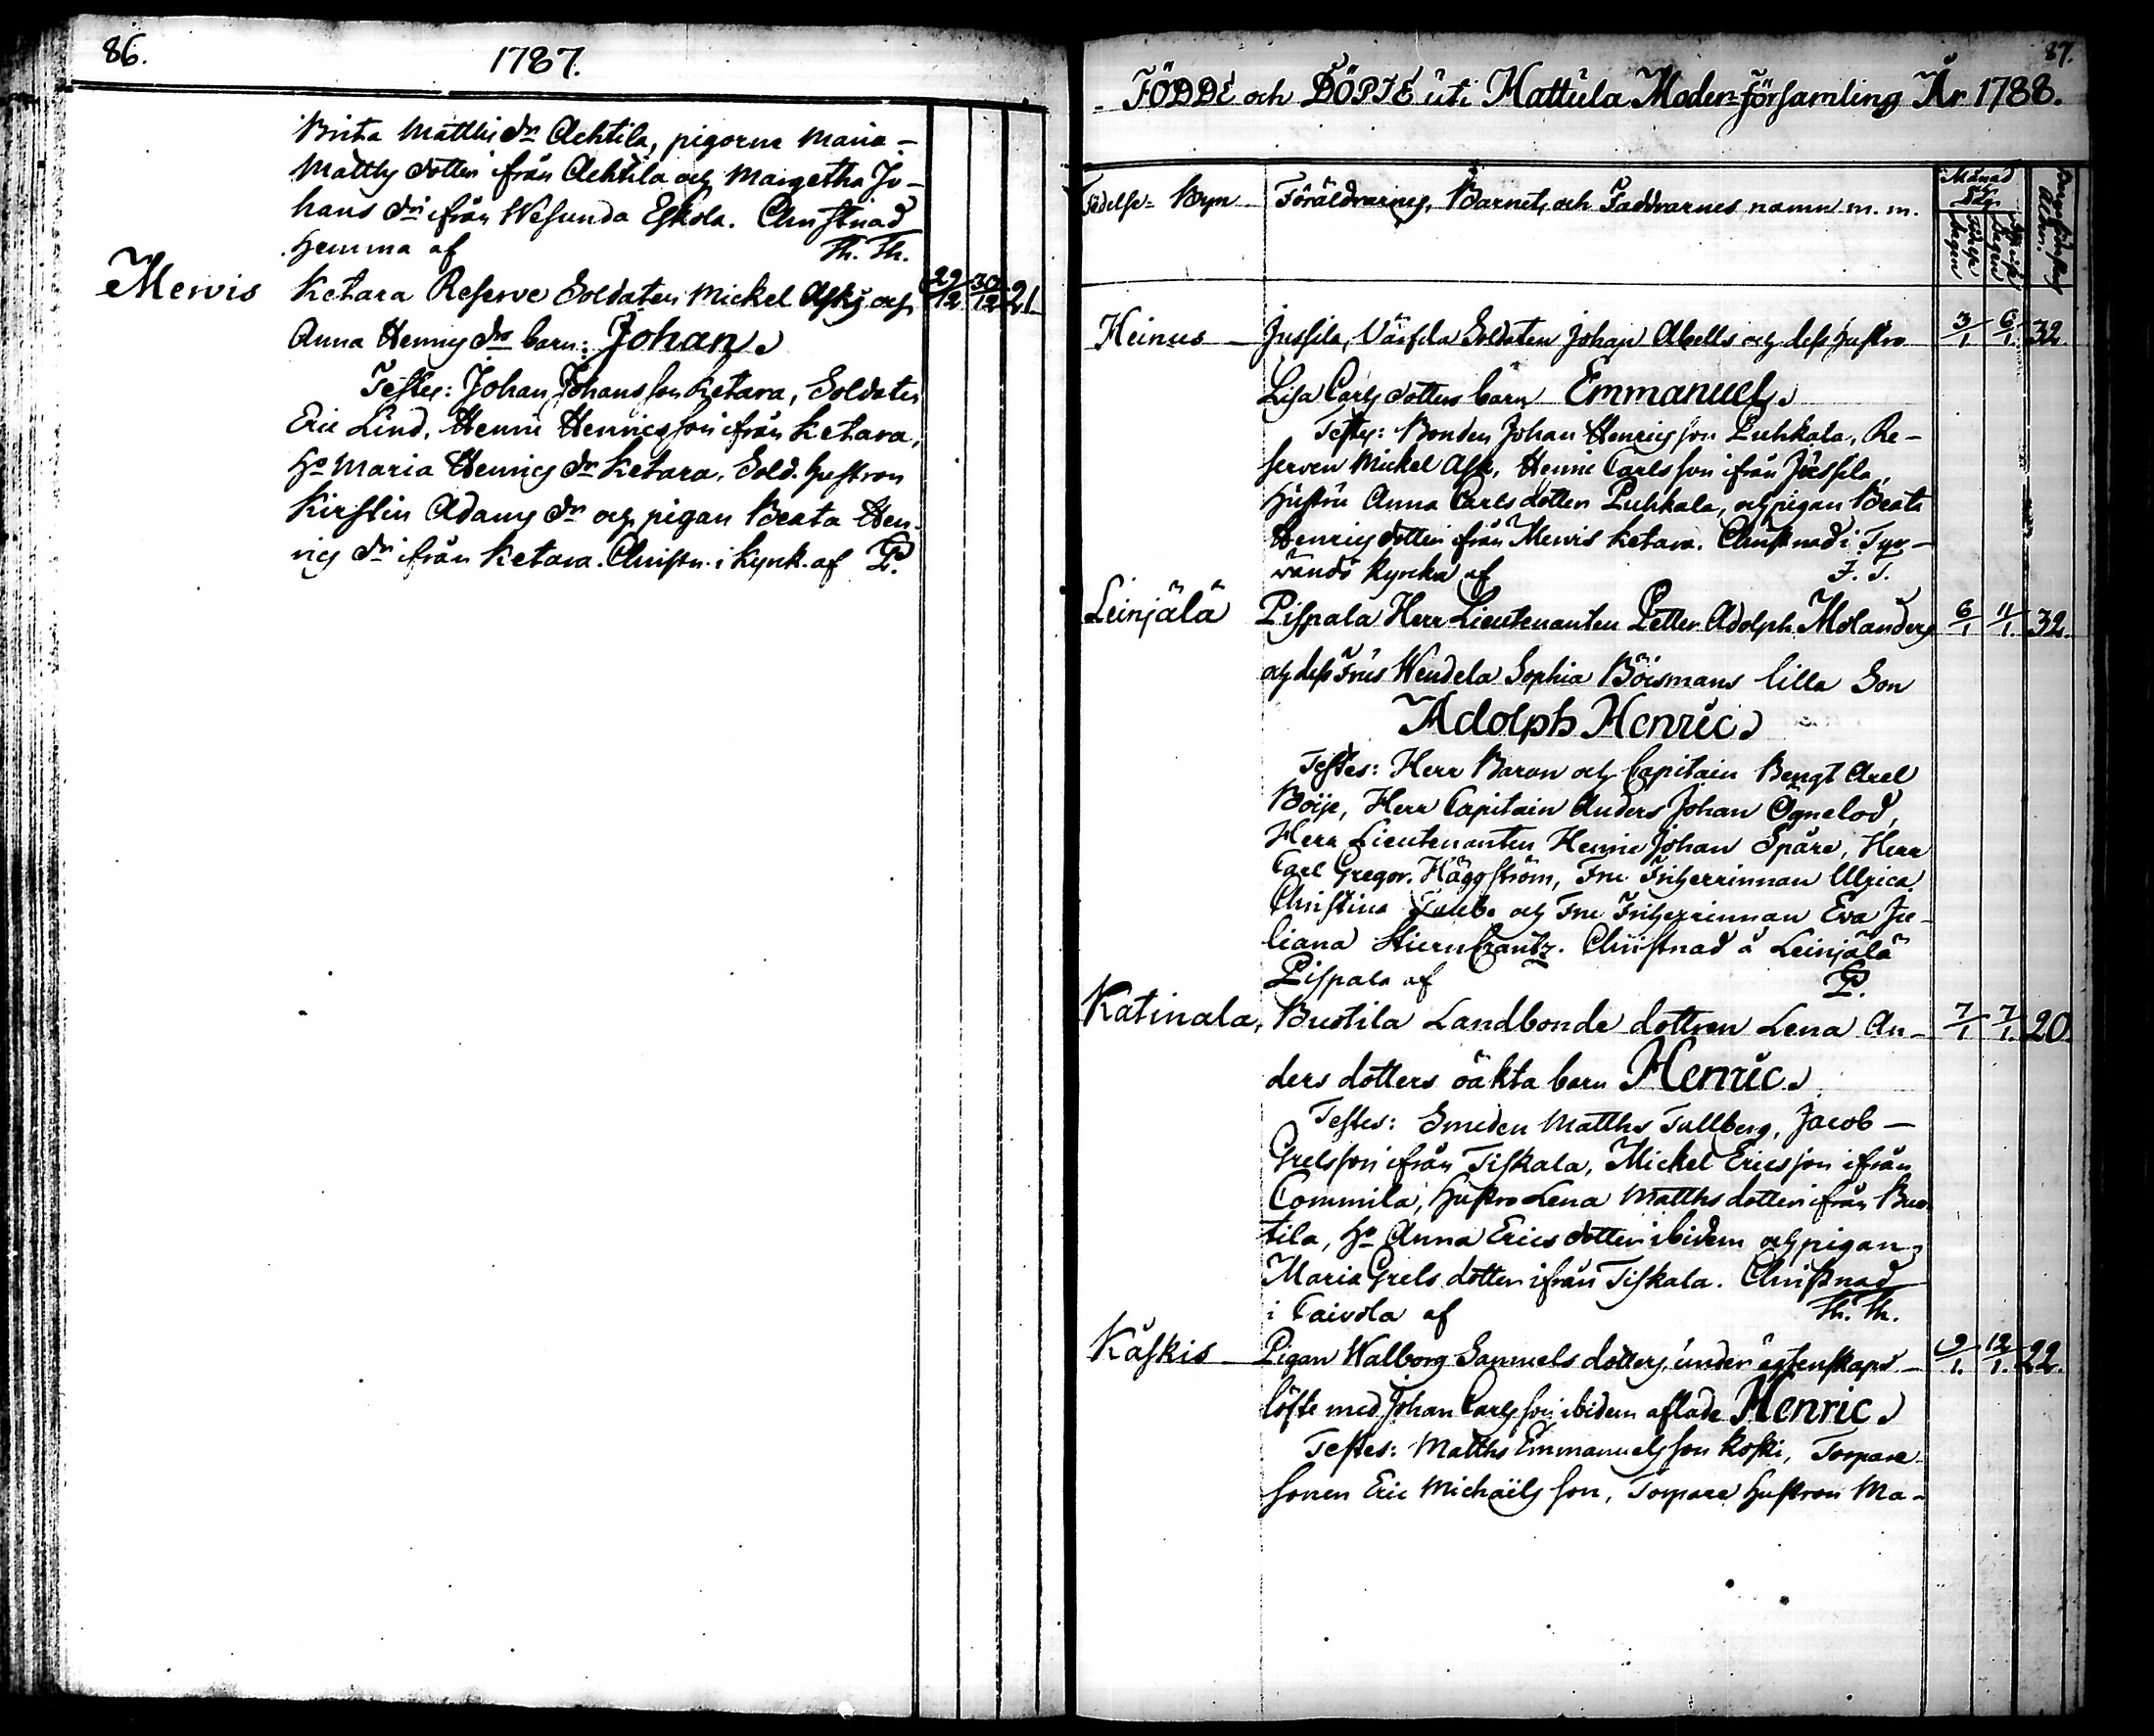 86.
1787.
Brita Matths dr Achtila, pigorne Maria
Matths dotter ifrån Achtila och Margetha Jo-
hans dr ifrån Wesunda Eskola. Christnad
hemma af Th. Th.
Mervis Ketara Reserve Soldaten Mickel Asks och 29/12 30/12 21.
Anna Henrics drs barn: Johan
Testes: Johan Johansson Ketara, Soldaten
Eric Lind, Henric Henricsson ifrån Ketara,
Ho Maria Henrics dr Ketara, Sold. hustron
Kirstin Adams dr och pigan Beata Hen-
rics dr ifrån Ketara. Christn. i Kyrk. af P.
87.
FÖDDE och DÖPTE uti Hattula Moder-Församling År 1788.
Födelse-Byn Föräldrarnes, Barnets och Faddrarnes namn m. m. Månad
Heinus Jussila, Värfda Soldaten Johan Abells och dess hustro 3/1 6/1 32.
Lisa Carls dotters barn Emmanuel
Testes: Bonden Johan Henricsson Puhkala, Re-
serven Mickel Ask, Henric Carlsson ifrån Jussila,
hustru Anna Carls dotter Puhkala, och pigan Beata
Henrics dotter ifrån Mervis Ketara. Christnad i Tyr-
wändö kyrcka af J. T.
Leinjälä Pispala Herr Lieutenanten Petter Adolph Molanders 6/1 11/1. 32.
och dess Frus Wendela Sophia Böismans lilla Son
Adolph Henric
Testes: Herr Baron och Capitain Bengt Axel
Boije, Herr Capitain Anders Johan Ögnelod,
Herr Lieutenanten Henric Johan Spåre, Herr
Carl Gregor. Häggström, Fru Friherrinnan Ulrica
Christina Taube och Fru Friherrinnan Eva Ju-
liana Stiernkrantz. Christnad å Leinjälä
Pispala af P.
Katinala, Buotila Landbonde dottren Lena An- 7/1 7/1. 20.
ders dotters oäkta barn Henric
Testes: Smeden Matths Tallberg, Jacob
Grelsson ifrån Tiskala, Mickel Ericsson ifrån
Commila, hustro Lena Matths dotter ifrån Buo-
tila, Ho Anna Erics dotter ibidem och pigan
Maria Grels dotter ifrån Tiskala. Christnad
i Taivola af Th. Th.
Kåskis Pigan Walborg Samuels dotters, under ägtenskaps 9/1. 12/1. 22.
löfte med Johan Carlsson ibidem aflade Henric
Testes: Matths Emmanuelsson Koski, Torpare
sonen Eric Michaëlsson, Torpare hustron Ma-